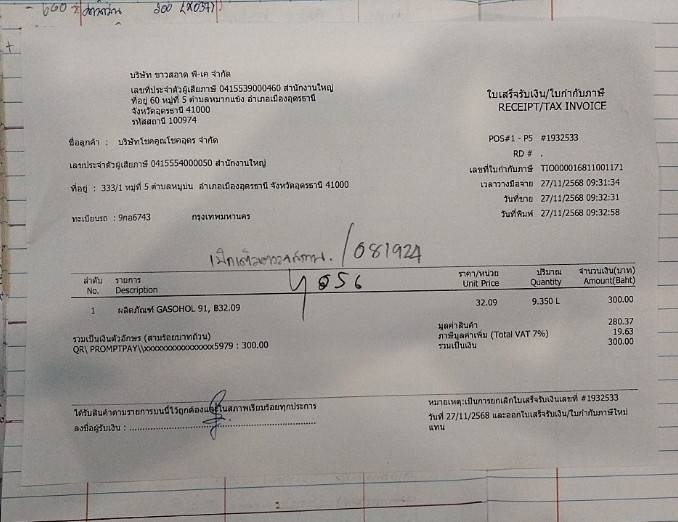 - 600 300 (X0377)
บริษัท ขาวสอาด พี-เค จำกัด
เลขที่ประจำตัวผู้เสียภาษี 0415539000460 สำนักงานใหญ่
ที่อยู่ 60 หมู่ที่ 5 ตำบลหมากแข้ง อำเภอเมืองอุดรธานี
จังหวัดอุดรธานี 41000
รหัสสถานี 100974
ใบเสร็จรับเงิน/ใบกำกับภาษี
RECEIPT/TAX INVOICE
POS#1 - P5 #1932533
RD # .
ชื่อลูกค้า : บริษัทโชคคูณโชคอุดร จำกัด
เลขประจำตัวผู้เสียภาษี 0415554000050 สำนักงานใหญ่
ที่อยู่ : 333/1 หมู่ที่ 5 ตำบลหมูม่น อำเภอเมืองอุดรธานี จังหวัดอุดรธานี 41000
ทะเบียนรถ : 9กอ6743 กรุงเทพมหานคร
เลขที่ใบกำกับภาษี TIO000016811001171
เวลาวางมือจ่าย 27/11/2568 09:31:34
วันที่ขาย 27/11/2568 09:32:31
วันที่พิมพ์ 27/11/2568 09:32:58
/081924
056
ลำดับ รายการ ราคา/หน่วย ปริมาณ จำนวนเงิน(บาท)
No. Description Unit Price Quantity Amount(Baht)
1 ผลิตภัณฑ์ GASOHOL 91, B32.09 32.09 9.350 L 300.00
มูลค่าสินค้า 280.37
ภาษีมูลค่าเพิ่ม (Total VAT 7%) 19.63
รวมเป็นเงิน 300.00
รวมเป็นเงินตัวอักษร (สามร้อยบาทถ้วน)
QR\ PROMPTPAY\\xxxxxxxxxxxxxxxx5979 : 300.00
ได้รับสินค้าตามรายการบนนี้ไว้ถูกต้องและในสภาพเรียบร้อยทุกประการ
ลงชื่อผู้รับเงิน :
หมายเหตุ:เป็นการยกเลิกใบเสร็จรับเงินเลขที่ #1932533
วันที่ 27/11/2568 และออกใบเสร็จรับเงิน/ใบกำกับภาษีใหม่
แทน